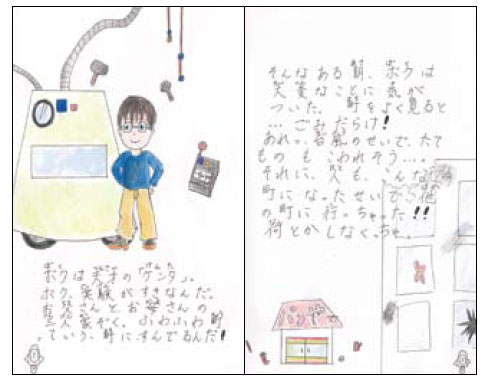 ボクは天才の「ケンタ」。
ボク、実験がすきなんだ。
お父さんと、お母さんの
三人家ぞく。ふわふわ町
っていう、町にすんでるんだ!
そんなある朝、ボクは
大変なことに気が
ついた。町をよく見ると
…ごみだらけ!
あれっ、台風のせいで、たて
ものもこわれそう…。
それに、犬も、こんな
町になったせいで、他
の町に行っちゃった!!
何とかしなくっちゃ。
パンや